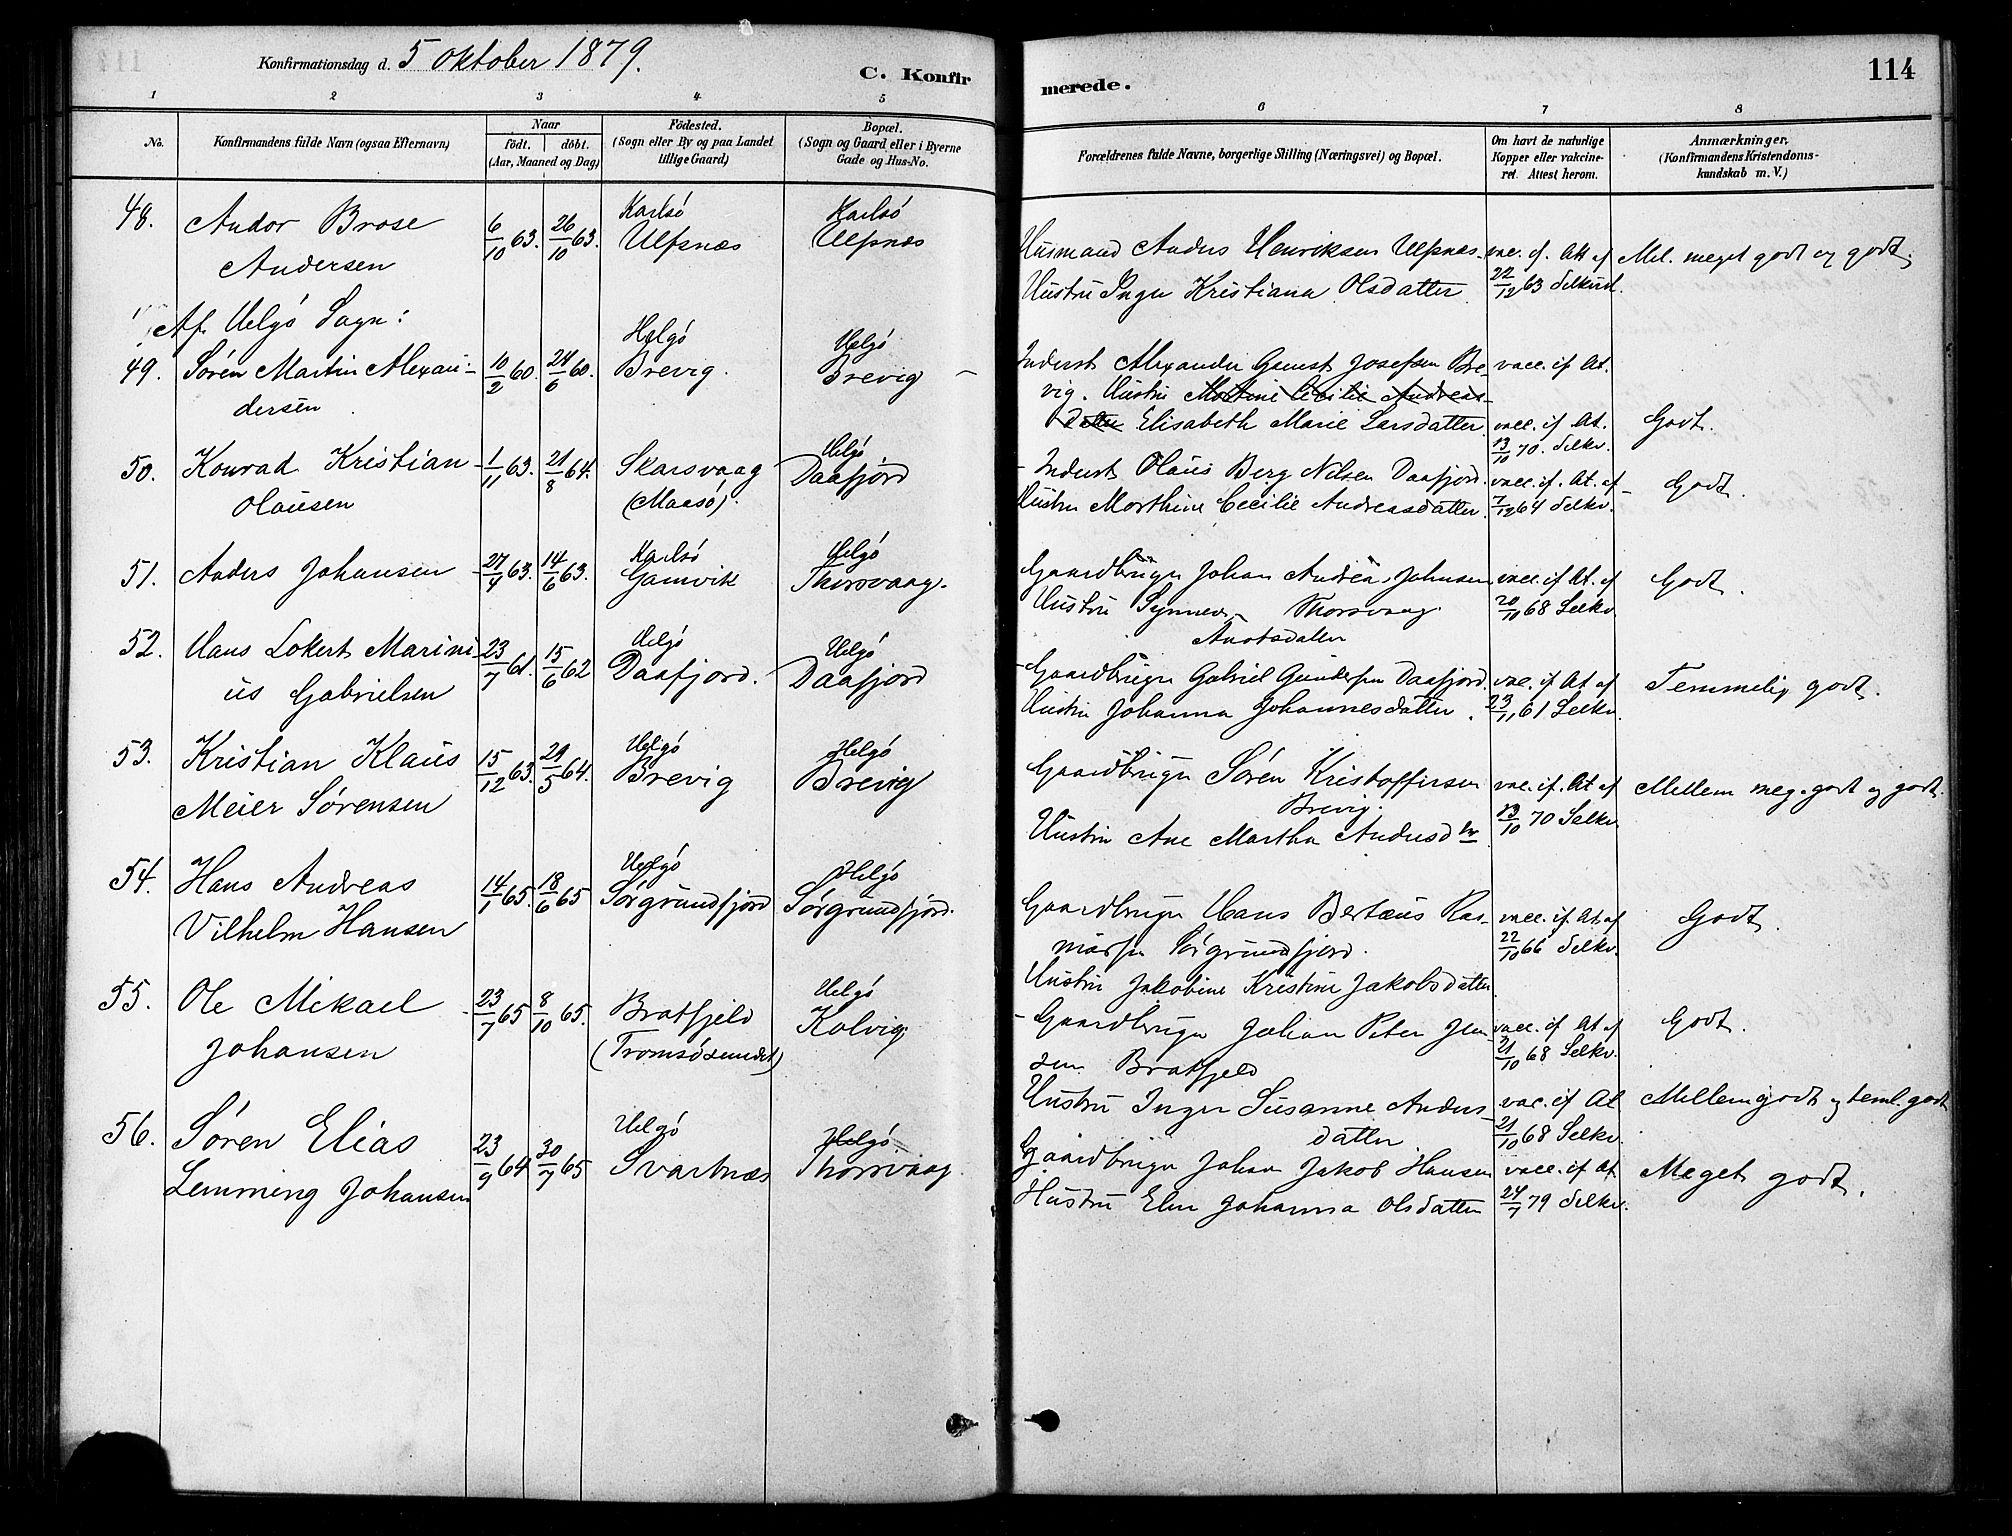 Konfirmationsdag d. 5 Oktober 1879.
C. Konfir
merede.
114
1 2 3 4 5
6 7 8
No.
Konfirmandens fulde Navn (ogsaa Efternavn)
Naar
födt. döbt.
(Aar, Maaned og Dag)
Födested.
(Sogn eller By og paa Landet
tillige Gaard)
Bopæl.
(Sogn og Gaard eller i Byerne
Gade og Hus-No.
Forældrenes fulde Navne, borgerlige Stilling (Næringsvei) og Bopæl.
Om havt de naturlige
Kopper eller vakcine-
ret. Attest herom.
Anmærkninger,
(Konfirmandens Kristendoms-
kundskab m. V.)
48. Andor Brose
Andersen
6/10 63. 26/10 63.
Karlsö
Ulfsnæs
Karlsö
Ulfsnæs
Husmand Anders Henriksen Ulfsnæs
Hustru Inger Kristiana Olsdatter
vac. if. Att af
22/12 63
Mel. meget godt og godt.
Af Helgö Sogn:
49. Sören Martin Alexan-
dersen
10/2 60. 24/6 60.
Helgö
Brevig.
Helgö
Brevig
Inderst Alexander Josefsen Bre-
vig. Hustru Mortine Cecilie Andreas-
datter Elisabeth Marie Larsdatter
vacc. if At.
vacc. if. At.
13/10 70. Selkv.
Godt.
50. Konrad Kristian
Olausen
1/11 63. 21/8 64.
Skarsvaag
(Maasö).
Helgö
Daafjord
Inderst Olaus Berg Nilsen Daafjord.
Hustru Morthine Cecilie Andreasdatter
vacc. if. At. af
7/12 64 Selkv.
Godt.
51. Anders Johansen
27/4 63. 14/6 63.
Karlsö
Gamvik
Helgö
Thorsvaag.
Gaardbruger Johan Andrea Johnsen
Hustru Synnev Thorsvaag.
datter
vacc. if At. af
20/10 68 Selkv.
Godt.
52. Hans Lokert Marini
us Gabrielsen
23/7 61. 15/6 62
Helgö
Daafjord.
Helgö
Daafjord
Gaardbruger Gabriel Gundersen Daafjord.
Hustru Johanna Johannesdatter.
vac. if At af
23/11 61 Selkv.
Temmelig godt.
53. Kristian Klaus
Meier Sørensen
15/12 63. 29/5 64.
Helgö
Brevig
Helgö
Brevig
Gaardbruger Sören Kristoffersen
Brevig.
Hustru Ane Martha Andersdtr
vac. if. At af
13/10 70 Selkv.
Mellem meg. godt og godt.
54. Hans Andreas
Vilhelm Hansen
14/1 65. 18/6 65
Helgö
Sörgrundfjord
Helgö
Sörgrundfjord.
Gaardbruger Hans Berteus Ras-
mussen Sörgrundfjord.
Hustru Jakobine Kristine Jakobsdatter
vacc. if. At af
22/10 66 Selkv.
Godt.
55. Ole Mikael
Johansen
23/7 65 8/10 65.
Bratfjeld
(Tromsösundet)
Helgö
Kolvig
Gaardbruger Johan Peter Jen
sen Bratfjeld
Hustru Inger Susanne Anders-
datter
vacc. if At af
21/10 68 Selkv.
Godt.
vac. if At
21/10 68 Selkv.
Mellem godt og teml. godt
56. Sören Elias
Lemming Johansen
23/9 64 30/7 65
Helgö
Svartnæs
Helgö
Thorsvaag.
Gaardbruger Johan Jakob Hansen
Hustru Elen Johanna Olsdatter
vacc. if At
24/7 79 Selkv.
Meget godt.